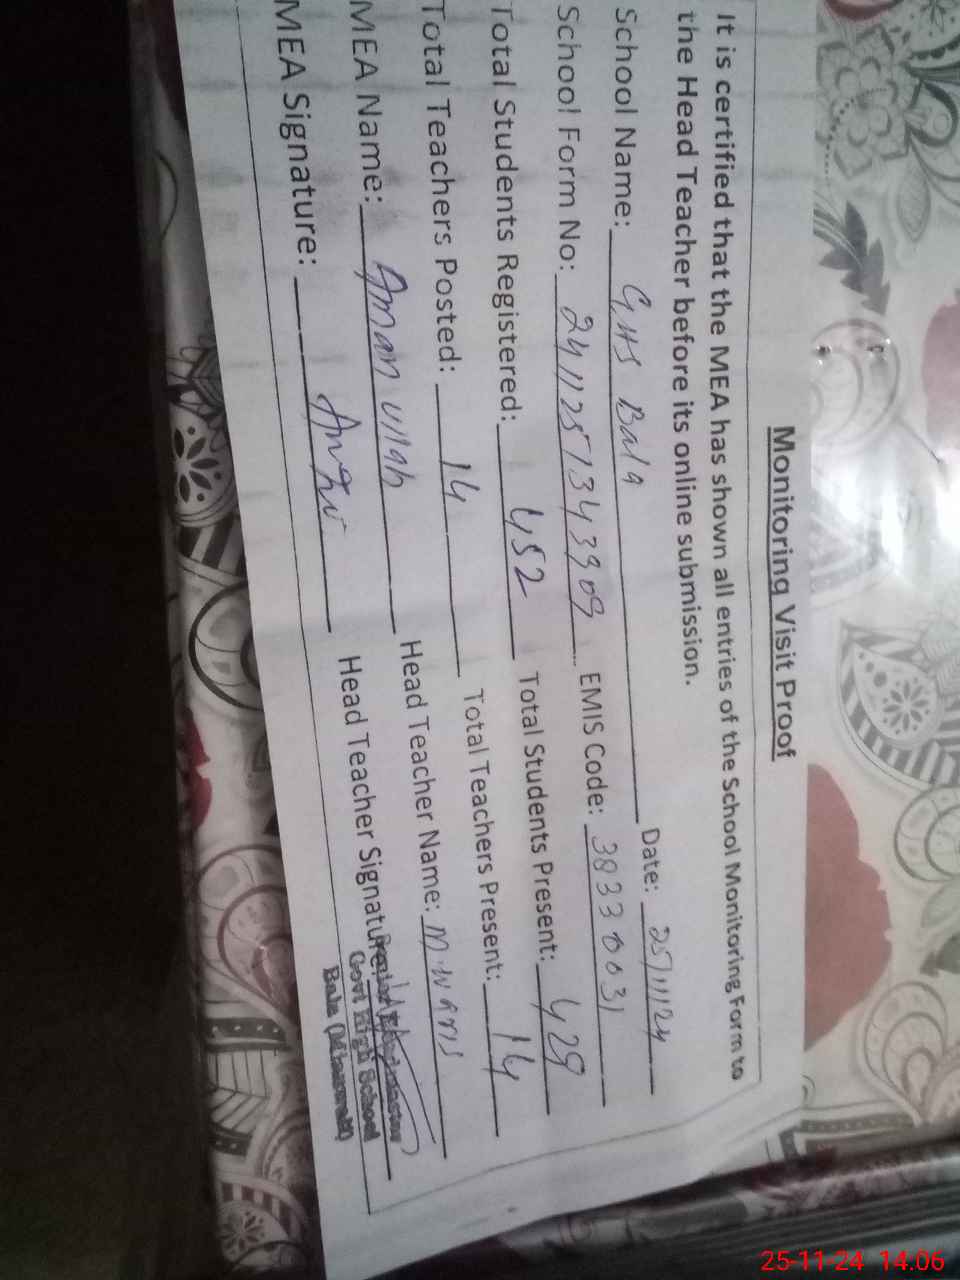 Monitoring Visit Proof
It is certified that the MEA has shown all entries of the School Monitoring Form to
the Head Teacher before its online submission.
School Name: GHS Bala Date: 25/11/24
School Form No: 2411251343909 EMIS Code: 38330031
Total Students Registered: 452 Total Students Present: 429
Total Teachers Posted: 14 Total Teachers Present: 14
MEA Name: Aman Ullah Head Teacher Name: M.W
MEA Signature: Head Teacher Signature:
Govt High School
Bala (Mianwali)
25-11-24 14:06